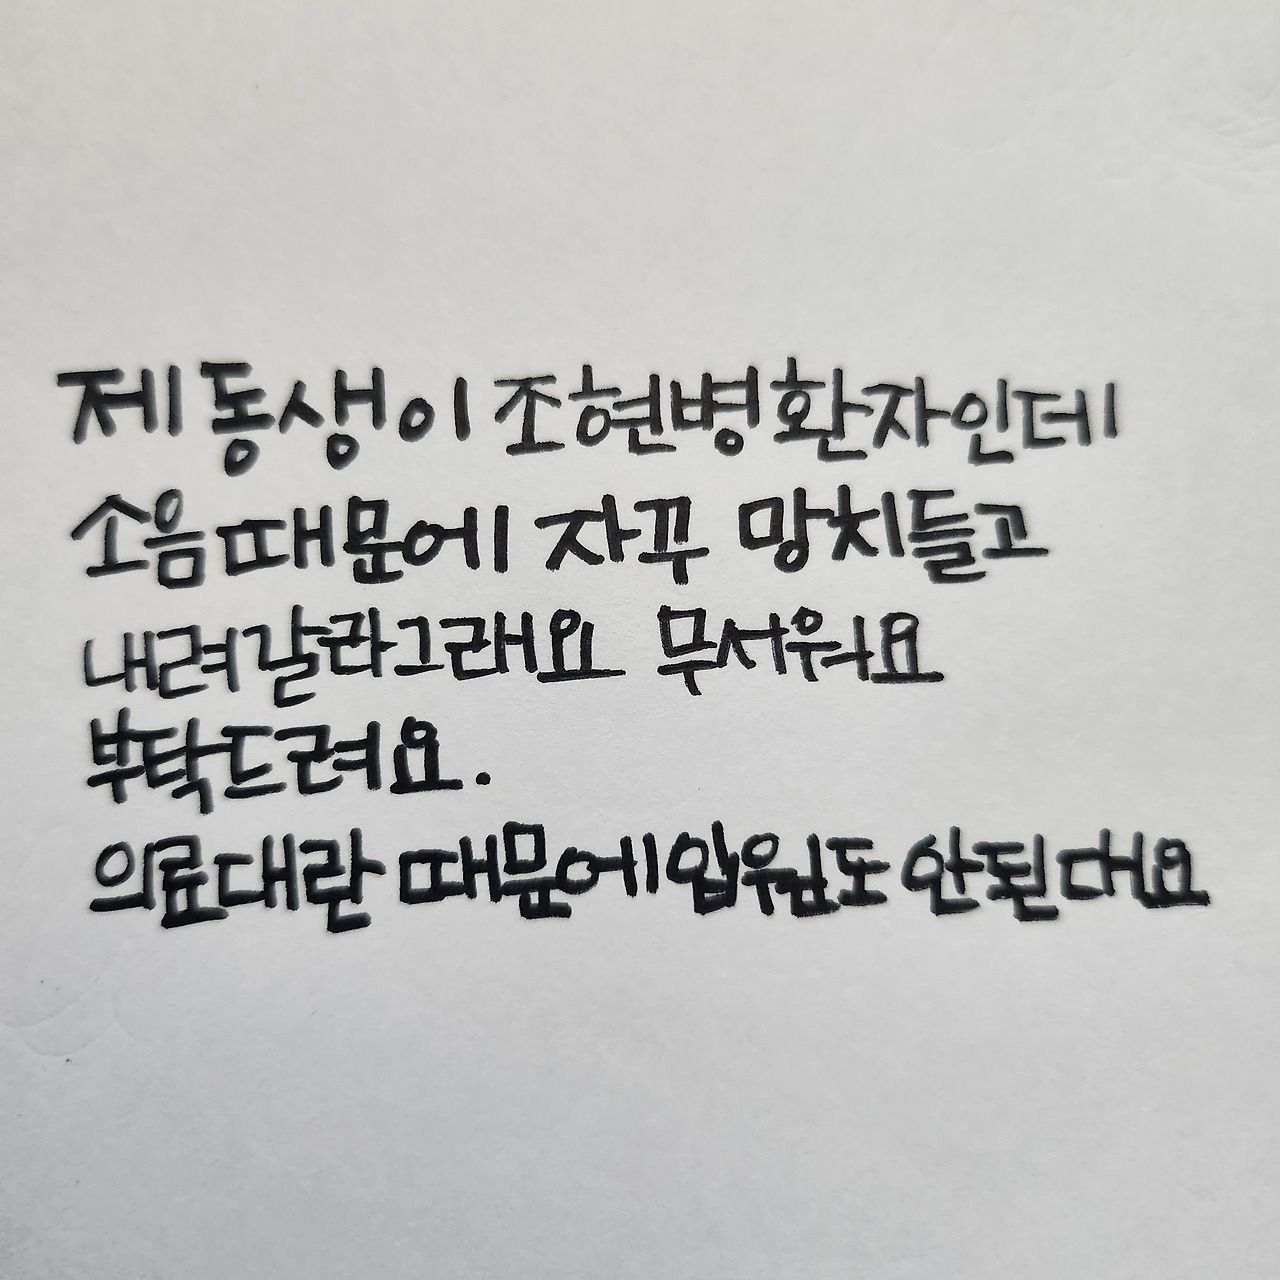 제 동생이 조현병환자인데
소음때문에 자꾸 망치들고
내려갈라그래요 무서워요
부탁드려요.
의료대란 때문에입원도 안된대요